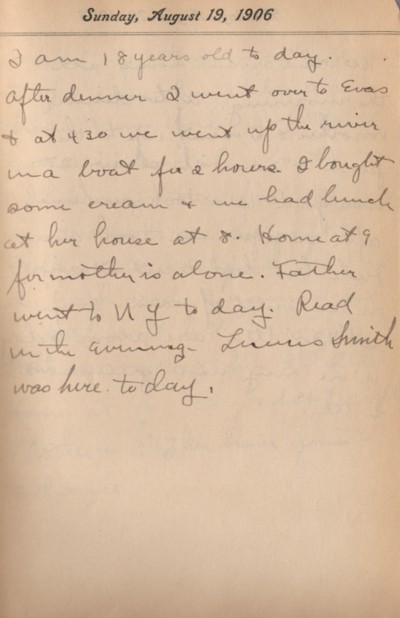 Sunday, August 19, 1906
I am 18 years old to day.
After dinner I went over to Evas
& at 4 30 we went up the river
in a boat for 2 hours. I bought
some cream & we had lunch
at her house at 8. Home at 9
for mother is alone. Father
went to N Y to day. Read
in the evening. Linus Smith
was here to day.